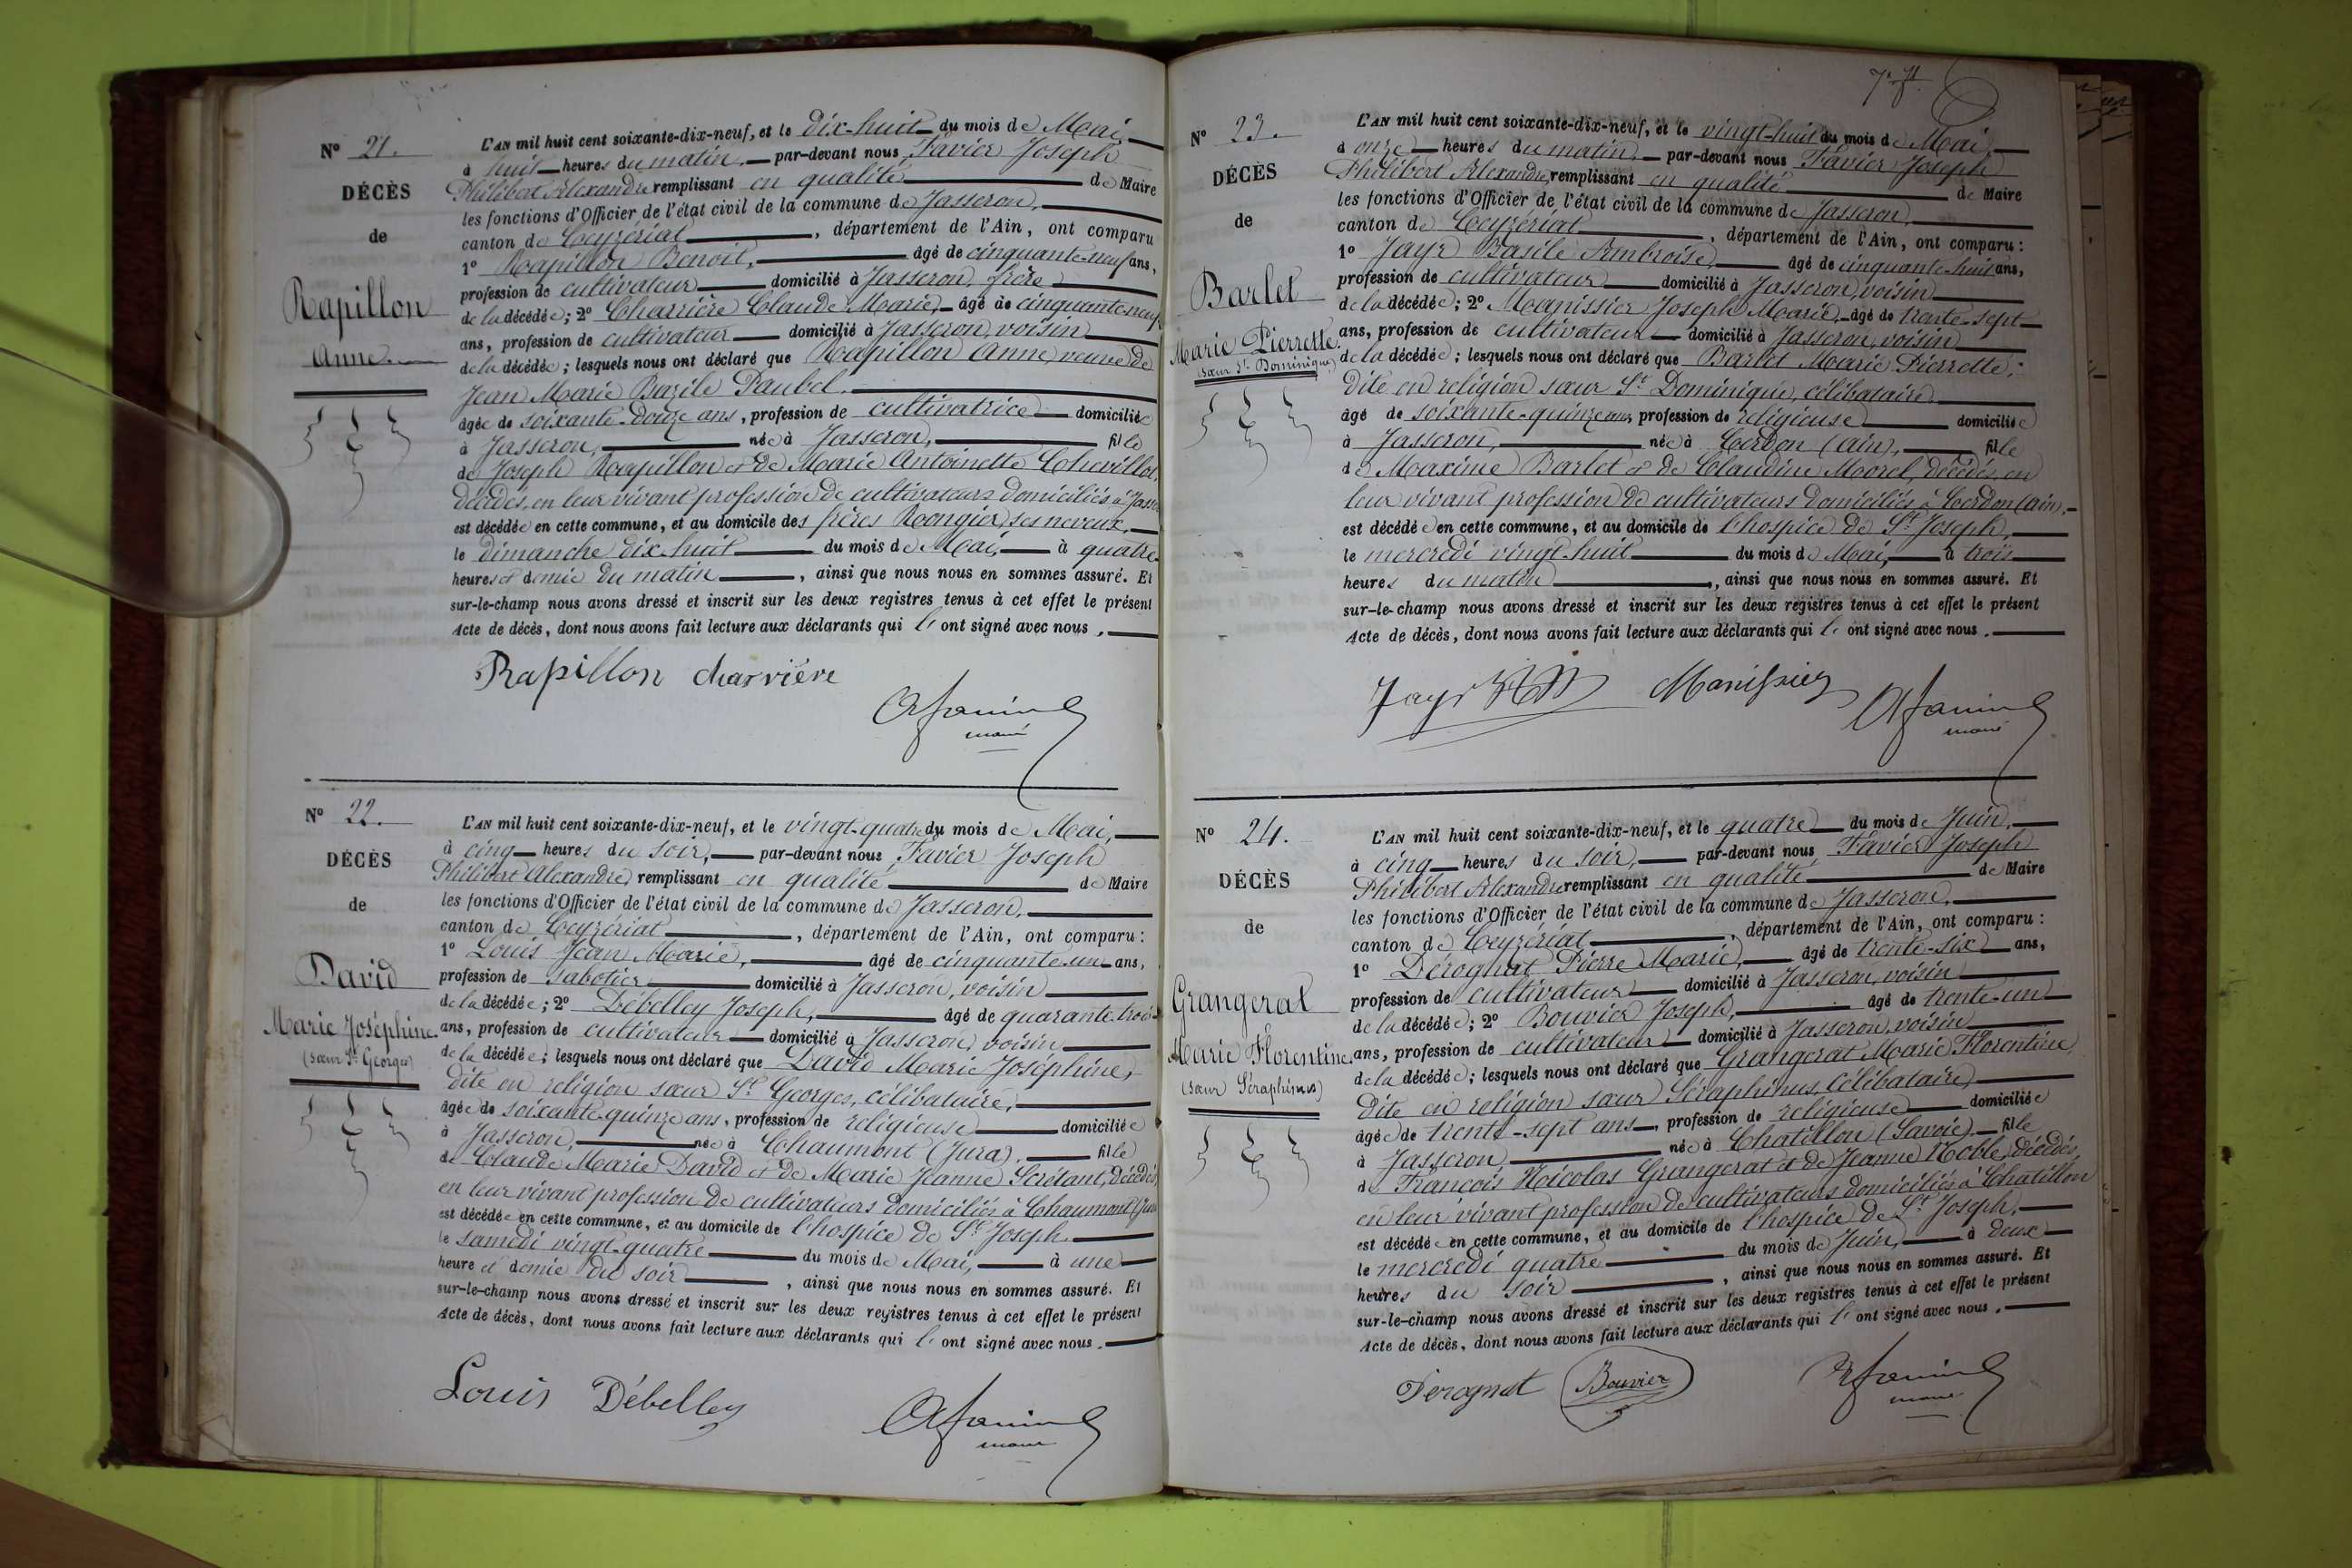 N° 21.
DÉCÈS
de
Rapillon
Anne
L'AN mil huit cent soixante-dix-neuf, et le dix-huit du mois de Mai,
à huit heures du matin, par-devant nous Favier Joseph
Philibert Alexandre remplissant en qualité de Maire
les fonctions d'Officier de l'état civil de la commune de Jasseron,
canton de Ceyzériat, département de l'Ain, ont comparu
1° Rapillon Benoit, âgé de cinquante-neuf ans,
profession de cultivateur domicilié à Jasseron, frère
de la décédée; 2° Charrière Claude Marie, âgé de cinquante neuf
ans, profession de cultivateur domicilié à Jasseron, voisin
de la décédée; lesquels nous ont déclaré que Rapillon Anne veuve de
Jean Marie Bazile Paubel,
âgée de soixante-douze ans, profession de cultivatrice domiciliée
à Jasseron, née à Jasseron, fille
de Joseph Rapillon et de Marie Antoinette Chevillot,
décédés, en leur vivant profession de cultivateurs domiciliés à Jasse
est décédée en cette commune, et au domicile des frères Rongier, ses neveux,
le dimanche dix-huit du mois de Mai, à quatre
heures et demie du matin, ainsi que nous nous en sommes assuré. Et
sur-le-champ nous avons dressé et inscrit sur les deux registres tenus à cet effet le présent
Acte de décès, dont nous avons fait lecture aux déclarants qui l' ont signé avec nous.
Rapillon charrière
maire
N° 22.
DÉCÈS
de
David
Marie Joséphine.
(sœur St Georges)
L'AN mil huit cent soixante-dix-neuf, et le vingt-quatre du mois de Mai,
à cinq heures du soir, par-devant nous Favier Joseph
Philibert Alexandre remplissant en qualité de Maire
les fonctions d'Officier de l'état civil de la commune de Jasseron,
canton de Ceyzériat, département de l'Ain, ont comparu:
1° Louis Jean Marie, âgé de cinquante-un ans,
profession de sabotier domicilié à Jasseron, voisin
de la décédée; 2° Débelley Joseph, âgé de quarante-trois
ans, profession de cultivateur domicilié à Jasseron, voisin
de la décédée; lesquels nous ont déclaré que David Marie Joséphine,
dite en religion sœur St Georges, célibataire,
âgée de soixante-quinze ans, profession de religieuse domiciliée
à Jasseron, née à Chaumont (Jura), fille
de Claude Marie David et de Marie Jeanne Scrétant, décédés,
en leur vivant profession de cultivateurs domiciliés à Chaumont (Jura
est décédée en cette commune, et au domicile de l'hospice de St Joseph
le samedi vingt-quatre du mois de Mai, à une
heure et demie du soir, ainsi que nous nous en sommes assuré. Et
sur-le-champ nous avons dressé et inscrit sur les deux registres tenus à cet effet le présent
Acte de décès, dont nous avons fait lecture aux déclarants qui l' ont signé avec nous.
Louis Débelley
maire
N° 23.
DÉCÈS
de
Barlet
Marie Pierrette.
(sœur St Dominique)
L'AN mil huit cent soixante-dix-neuf, et le vingt-huit du mois de Mai,
à onze heures du matin, par-devant nous Favier Joseph
Philibert Alexandre, remplissant en qualité de Maire
les fonctions d'Officier de l'état civil de la commune de Jasseron,
canton de Ceyzériat, département de l'Ain, ont comparu:
1° Jayr Basile Ambroise, âgé de cinquante-huit ans,
profession de cultivateur domicilié à Jasseron, voisin
de la décédée; 2° Manissier Joseph Marie, âgé de trente-sept
ans, profession de cultivateur domicilié à Jasseron, voisin
de la décédée; lesquels nous ont déclaré que Barlet Marie Pierrette,
dite en religion sœur St Dominique, célibataire
âgé de soixante-quinze ans, profession de religieuse domiciliée
à Jasseron, née à Cerdon (ain), fille
de Maxime Barlet et de Claudine Morel, décédés, en
leur vivant profession de cultivateurs domiciliés à Cerdon (ain),
est décédée en cette commune, et au domicile de l'hospice de St Joseph,
le mercredi vingt-huit du mois de Mai, à trois
heures du matin, ainsi que nous nous en sommes assuré. Et
sur-le-champ nous avons dressé et inscrit sur les deux registres tenus à cet effet le présent
Acte de décès, dont nous avons fait lecture aux déclarants qui l' ont signé avec nous.
Jayr Manissier
maire
N° 24.
DÉCÈS
de
Grangerat
Marie Florentine.
(sœur Séraphinus)
L'AN mil huit cent soixante-dix-neuf, et le quatre du mois de Juin,
à cinq heures du soir, par-devant nous Favier Joseph
Philibert Alexandre remplissant en qualité de Maire
les fonctions d'Officier de l'état civil de la commune de Jasseron,
canton de Ceyzériat, département de l'Ain, ont comparu:
1° Dérognat Pierre Marie, âgé de trente-six ans,
profession de cultivateur domicilié à Jasseron, voisin
de la décédée; 2° Bouvier Joseph, âgé de trente-un
ans, profession de cultivateur domicilié à Jasseron, voisin
de la décédée; lesquels nous ont déclaré que Grangerat Marie Florentine,
dite en religion sœur Séraphinus, célibataire,
âgée de trente-sept ans, profession de religieuse domiciliée
à Jasseron, née à Chatillon (Savoie), fille
de François Nicolas Grangerat et de Jeanne Noble, décédés,
en leur vivant profession de cultivateurs domiciliés à Chatillon
est décédée en cette commune, et au domicile de l'hospice de St Joseph,
le mercredi quatre du mois de Juin, à deux
heures du soir, ainsi que nous nous en sommes assuré. Et
sur-le-champ nous avons dressé et inscrit sur les deux registres tenus à cet effet le présent
Acte de décès, dont nous avons fait lecture aux déclarants qui l' ont signé avec nous.
Derognat Bouvier
maire